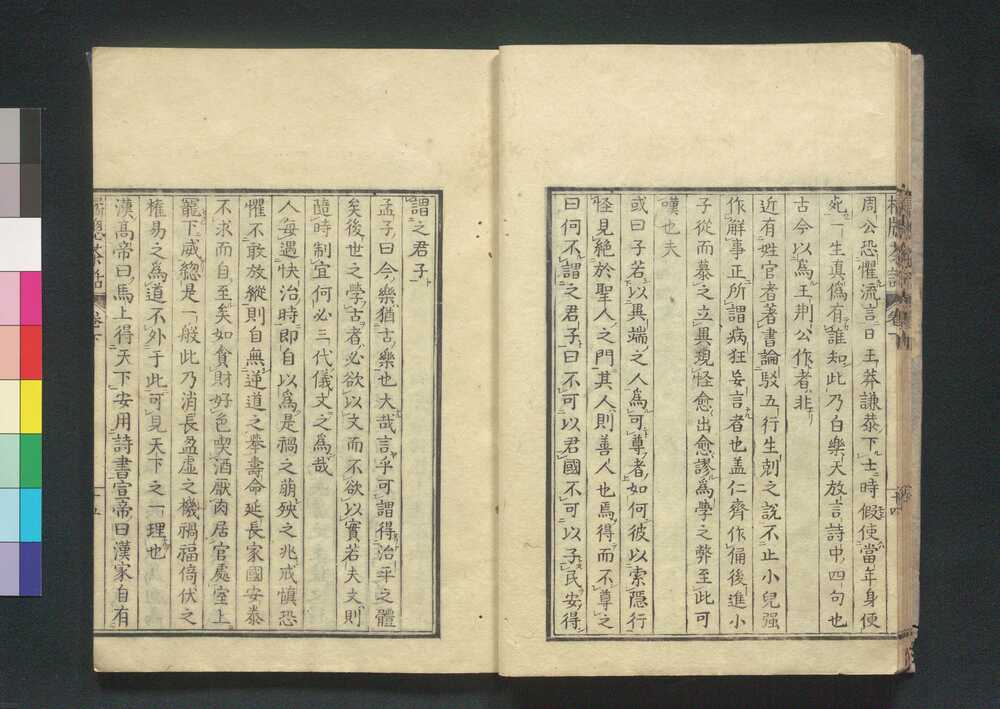 周公恐懼流言日王莽謙恭下士時假使當年身便
死一生真偽有誰知此乃白樂天放言詩中四句也
古今以爲王荆公作者非
近有姓官者著書論駁五行生剋之說不止小兒强
作解事正所謂病狂妄言者也盖仁齊作俑後進小
子從而慕之立異現怪愈出愈謬爲學之弊至此可
嘆也夫
或曰子若以異端之人爲可尊者如何彼以索隱行
怪見絶於聖人之門其人則善人也焉得而不尊之
曰何不謂之君子曰不可以君國不可以子民安得
謂之君子
孟子曰今樂猶古樂也大哉言乎可謂得治平之體
矣後世之學古者必欲以文而不欲以實若夫文則
隨時制宜何必三代儀文之爲哉
人每遇快治時即自以爲是禍之萠殃之兆戒慎恐
懼不敢放縱則自無逆道之擧壽命延長家國安泰
不求而自至矣如貪財好色喫酒厭肉居官處室上
寵下威總是一般此乃消長盈虛之機禍福倚伏之
権易之為道不外于此可見天下之一理也
漢高帝曰馬上得天下安用詩書宣帝曰漢家自有